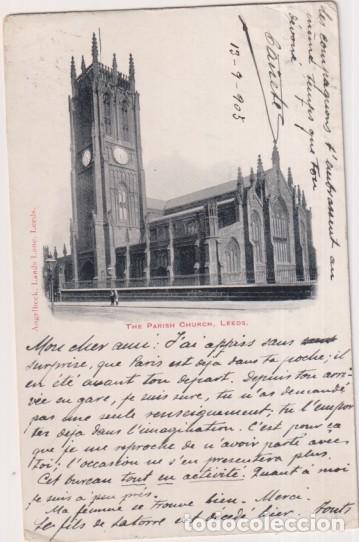 THE PARISH CHURCH, LEEDS.
Angelbeck, Lands Lane, Leeds.
Mon cher ami: J'ai appris sans
surprise, que Paris est déjà dans ta poche; il
en été avant ton départ. Depuis ton arri-
vée en gare, je suis sûre, tu n'as demandé
pas une seule renseignement, tu l'empor-
ter déjà dans l'imagination. C'est pour ça
que je me reproche de n'avoir parté avec
toi; l'occasion ne s'en presentera plus.
Cet bureau tout en activité. Quant à moi
je suis à peu près.
Ma femme se trouve bien. Merci.
Le fils de Latorre est décédé hier. Touts
les compagnions t'embrassent au
même temps que ton
dévoué
13-9-905
todocoleccion.net